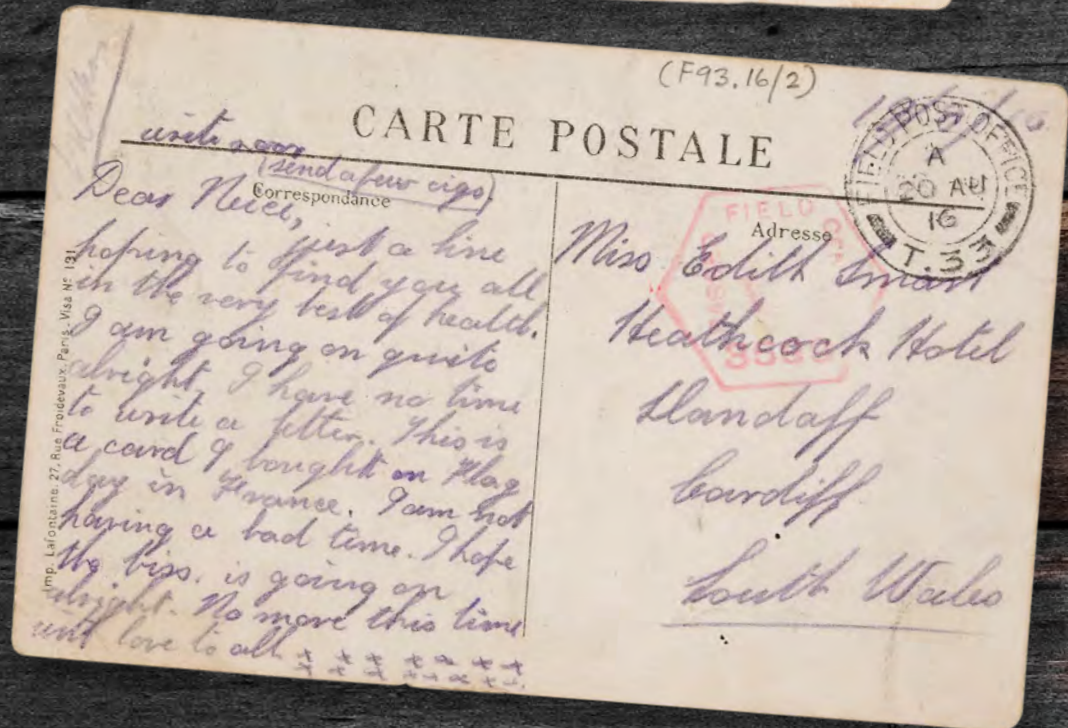 (F93.16/2)
CARTE POSTALE
write soon
(send a few cigs)
Correspondance
Dear Niece,
just a line
hoping to find you all
in the very best of health.
I am going on quite
alright, I have no time
to write a letter. This is
a card I bought on Flag
day in France. I am not
having a bad time. I hope
the biss. is going on
alright. No more this time
with love to all x x x x x x
x x x x x x
Imp. Lafontaine, 27, Rue Froidevaux, Paris - Visa No 131
FIELD POST OFFICE
A
20 AU
16
T.33
FIELD
Adresse
Miss Edith Smart
Heathcock Hotel
Llandaff
Cardiff
South Wales